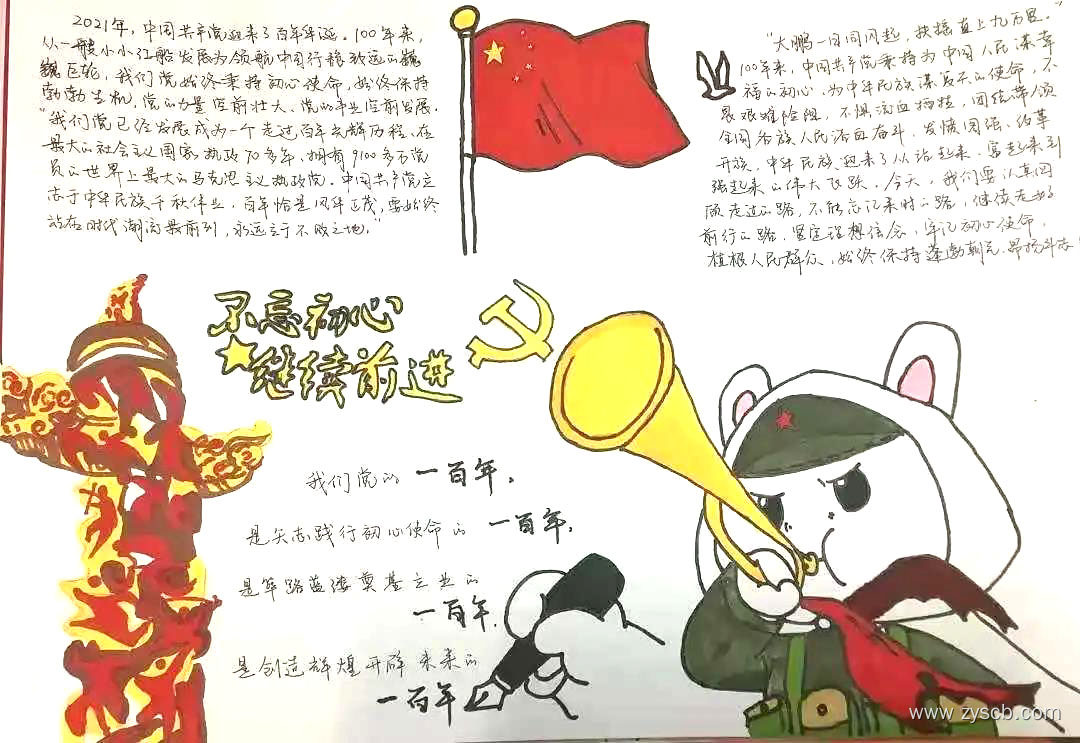 2021年，中国共产党迎来了百年华诞。100年来，
从一艘小小红船发展为领航中国行稳致远的巍
巍巨轮，我们党始终秉持初心使命，始终保持
勃勃生机，党的力量空前壮大、党的事业空前发展。
"我们党已经发展成为一个走过百年光辉历程、在
最大的社会主义国家执政70多年、拥有9100多万党
员的世界上最大的马克思主义执政党。中国共产党立
志于中华民族千秋伟业，百年恰是风华正茂，要始终
站在时代潮流最前列，永远立于不败之地。
"大鹏一日同风起，扶摇直上九万里。"
100年来，中国共产党秉持为中国人民谋幸
福的初心、为中华民族谋复兴的使命，不
畏艰难险阻，不惧流血牺牲，团结带领
全国各族人民浴血奋斗、发愤图强、改革
开放，中华民族迎来了从站起来、富起来到
强起来的伟大飞跃。今天，我们要认真回
顾走过的路，不能忘记来时的路，继续走好
前行的路，坚定理想信念，牢记初心使命，
植根人民群众，始终保持蓬勃朝气、昂扬斗志！
不忘初心
继续前进
我们党的一百年。
是矢志践行初心使命的一百年，
是筚路蓝缕奠基立业的
一百年，
是创造辉煌开辟未来的
一百年
www.zyscb.com